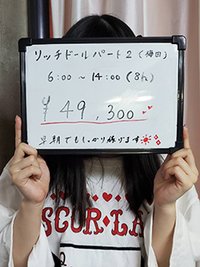 リッチドールパート2(梅田)
6:00 ~ 14:00 (8h)
¥49,300
早朝でもしっかり稼げます